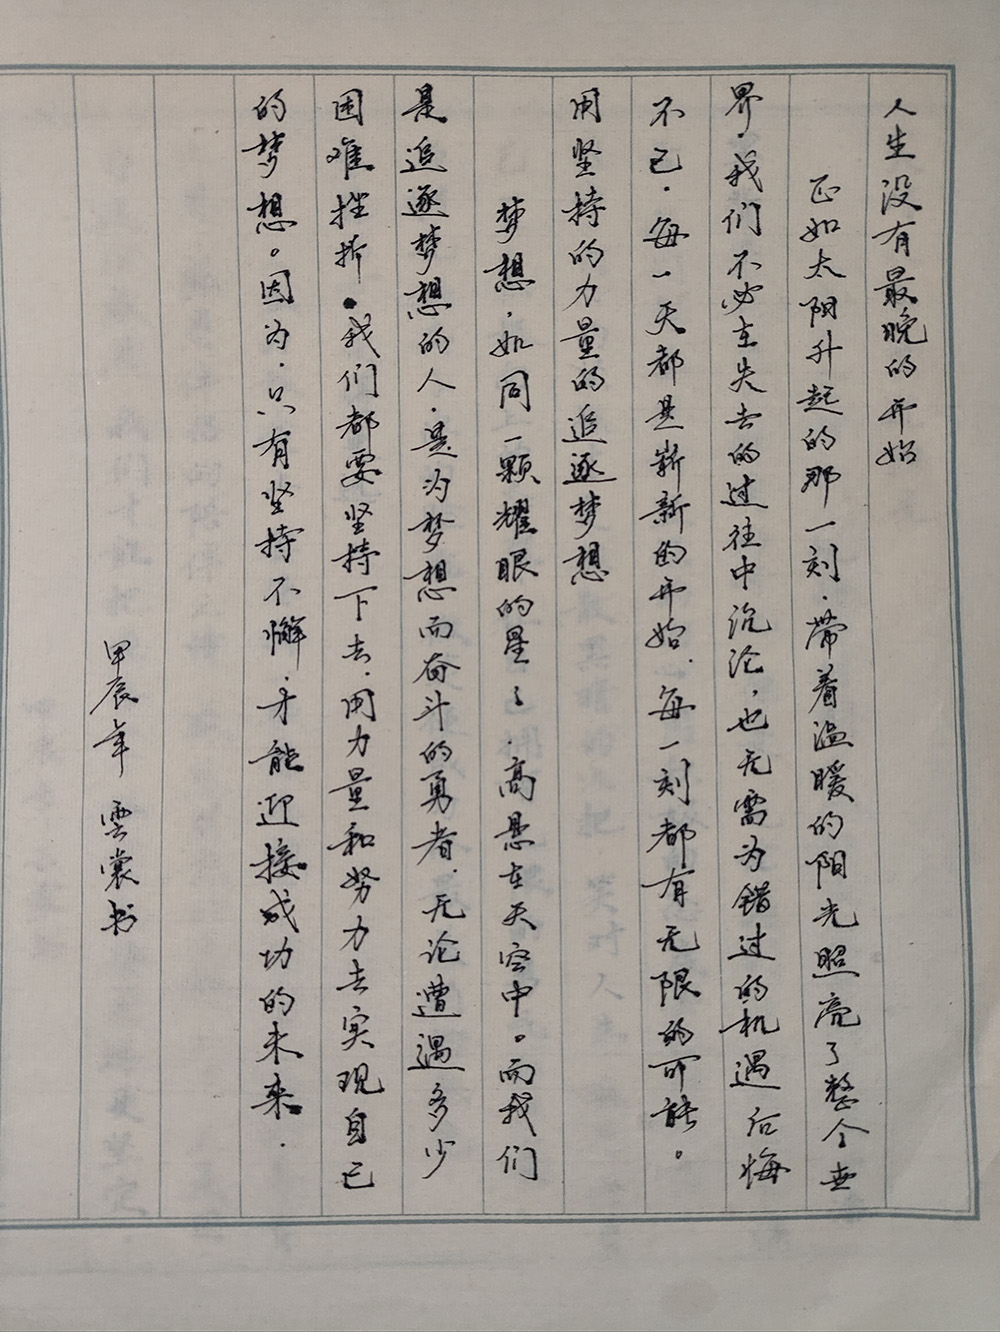 人生没有最晚的开始
正如太阳升起的那一刻.带着温暖的阳光照亮了整个世
界.我们不必在失去的过往中沉沦,也无需为错过的机遇后悔
不已.每一天都是崭新的开始.每一刻都有无限的可能。
用坚持的力量的追逐梦想
梦想,如同一颗耀眼的星々.高悬在天空中。而我们
是追逐梦想的人.是为梦想而奋斗的勇者.无论遭遇多少
困难挫折.我们都要坚持下去.用力量和努力去实现自己
的梦想。因为.只有坚持不懈.才能迎接成功的未来.
甲辰年 雲裳书